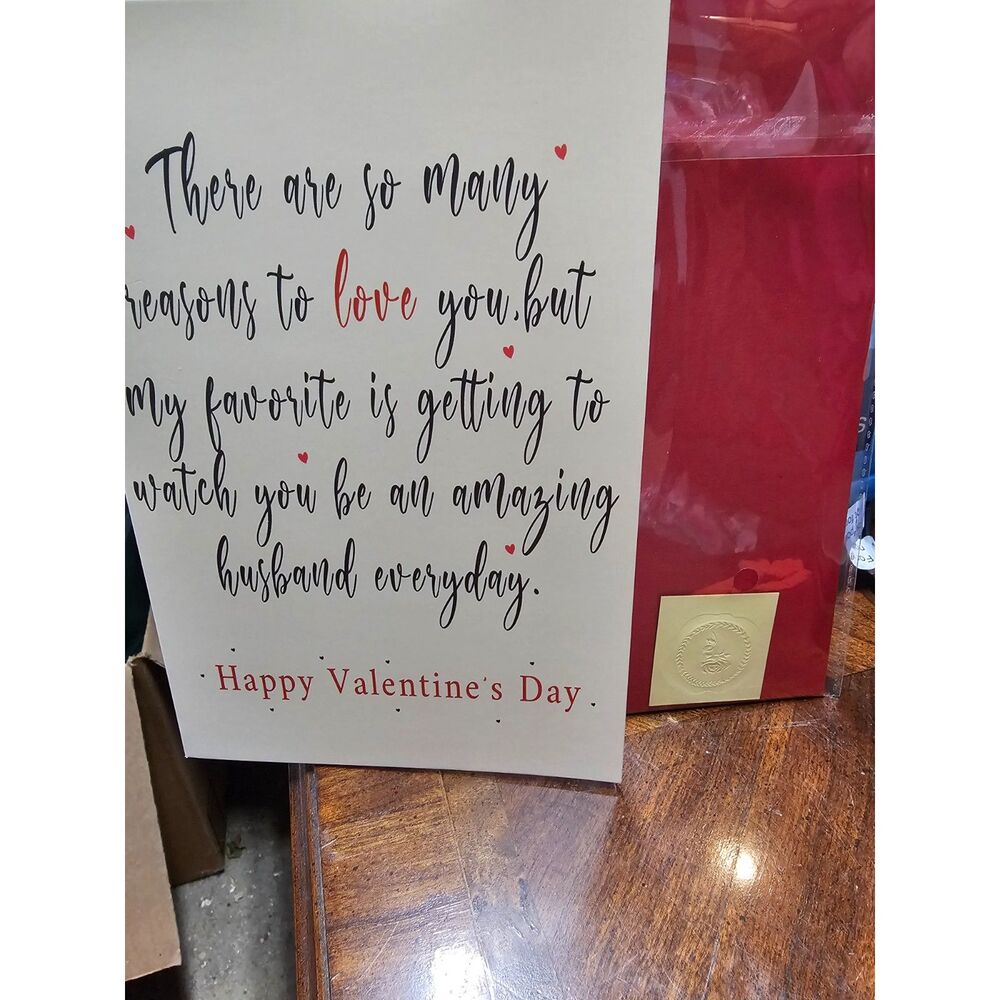 There are so many
reasons to love you,but
my favorite is getting to
watch you be an amazing
husband everyday.
Happy Valentine's Day